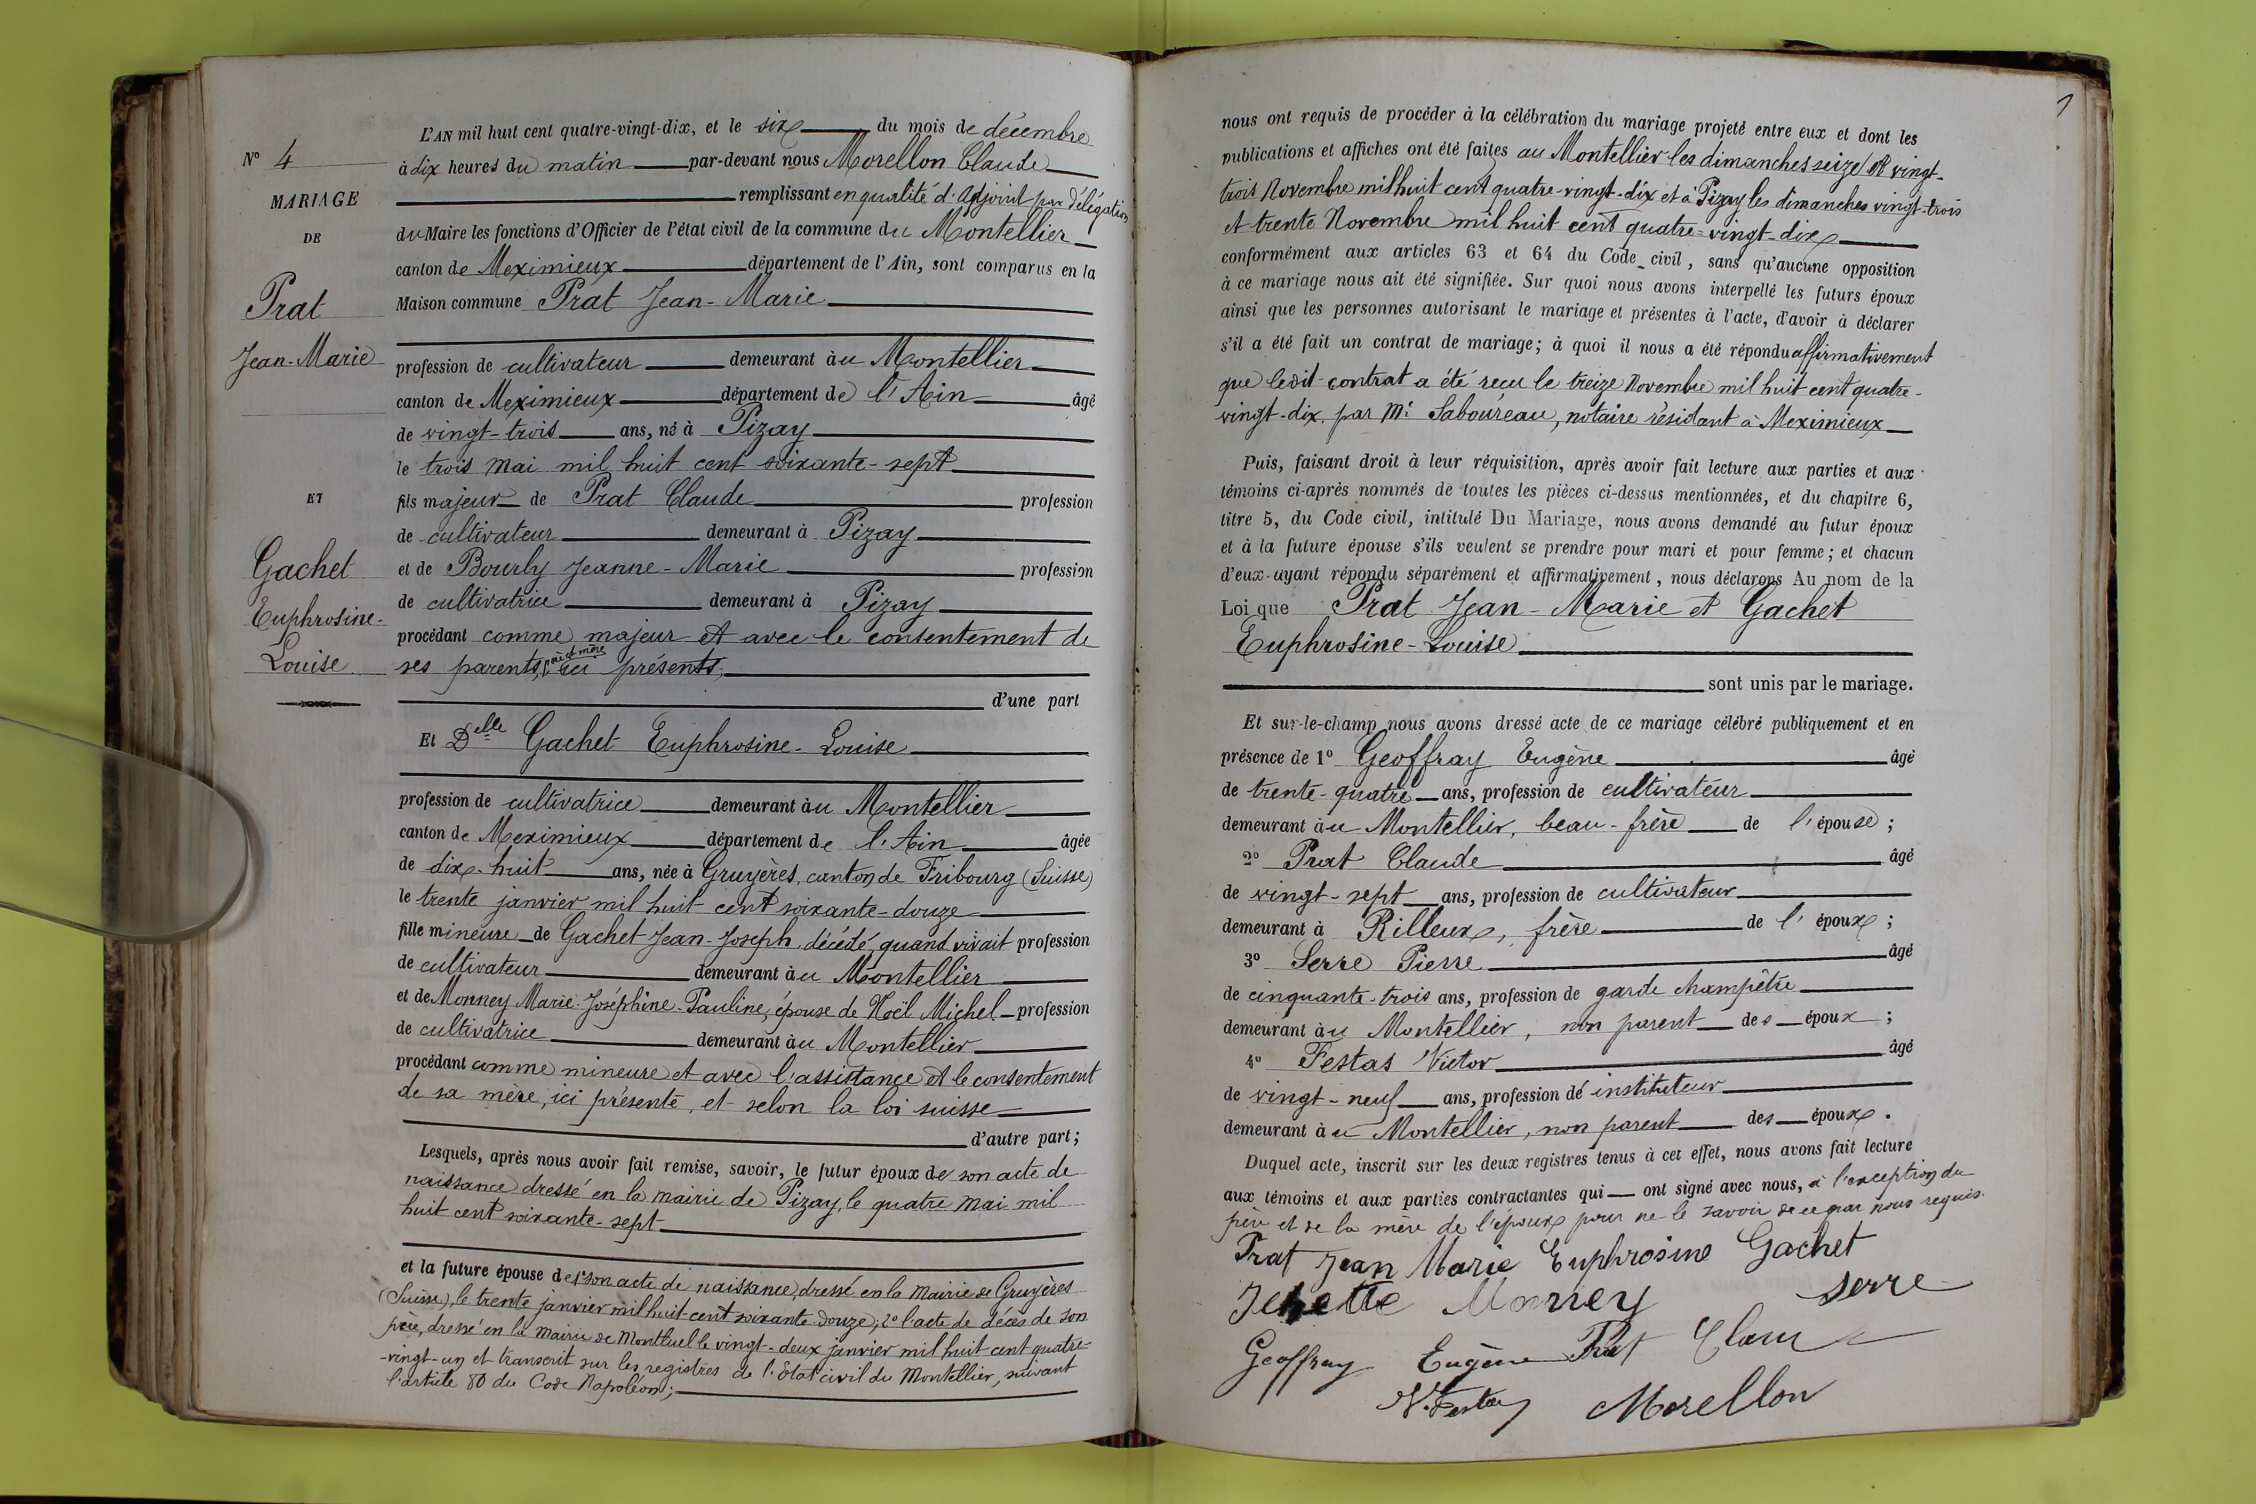 N° 4
MARIAGE
DE
Prat
Jean-Marie
ET
Gachet
Euphrosine-
Louise
L'AN mil huit cent quatre-vingt-dix, et le six du mois de décembre
à dix heures du matin par-devant nous Morellon Claude
remplissant en qualité d'Adjoint par délégation
du Maire les fonctions d'Officier de l'état civil de la commune du Montellier
canton de Meximieux département de l'Ain, sont comparus en la
Maison commune Prat Jean-Marie
profession de cultivateur demeurant au Montellier
canton de Meximieux département de l'Ain âgé
de vingt-trois ans, né à Pizay
le trois Mai mil huit cent soixante-sept
fils majeur de Prat Claude profession
de cultivateur demeurant à Pizay
et de Bourly Jeanne-Marie profession
de cultivatrice demeurant à Pizay
procédant comme majeur et avec le consentement de
ses parents, père et mère ici présents,
d'une part
Et Delle Gachet Euphrosine-Louise
profession de cultivatrice demeurant au Montellier
canton de Meximieux département de l'Ain âgée
de dix-huit ans, née à Gruyères, canton de Fribourg (Suisse)
le trente janvier mil huit cent soixante-douze
fille mineure de Gachet Jean-Joseph, décédé, quand vivait profession
de cultivateur demeurant au Montellier
et de Monney Marie-Joséphine-Pauline, épouse de Noël Michel profession
de cultivatrice demeurant au Montellier
procédant comme mineure et avec l'assistance et le consentement
de sa mère, ici présente, et selon la loi suisse
d'autre part;
Lesquels, après nous avoir fait remise, savoir, le futur époux de son acte de
naissance dressé en la mairie de Pizay, le quatre Mai mil
huit cent soixante-sept
et la future épouse de 1° son acte de naissance, dressé en la Mairie de Gruyères
(Suisse), le trente janvier mil huit cent soixante-douze; 2° l'acte de décès de son
père, dressé en la Mairie de Montluel le vingt-deux janvier mil huit cent quatre-
-vingt-un et transcrit sur les registres de l'Etat civil du Montellier, suivant
l'article 80 du Code Napoléon;
1
nous ont requis de procéder à la célébration du mariage projeté entre eux et dont les
publications et affiches ont été faites au Montellier les dimanches seize et vingt-
trois Novembre mil huit cent quatre-vingt-dix et à Pizay les dimanches vingt-trois
et trente Novembre mil huit cent quatre-vingt-dix
conformément aux articles 63 et 64 du Code civil, sans qu'aucune opposition
à ce mariage nous ait été signifiée. Sur quoi nous avons interpellé les futurs époux
ainsi que les personnes autorisant le mariage et présentes à l'acte, d'avoir à déclarer
s'il a été fait un contrat de mariage; à quoi il nous a été répondu affirmativement
que ledit contrat a été reçu le treize Novembre mil huit cent quatre-
vingt-dix par Me Saboureau, notaire résidant à Meximieux
Puis, faisant droit à leur réquisition, après avoir fait lecture aux parties et aux
témoins ci-après nommés de toutes les pièces ci-dessus mentionnées, et du chapitre 6,
titre 5, du Code civil, intitulé Du Mariage, nous avons demandé au futur époux
et à la future épouse s'ils veulent se prendre pour mari et pour femme; et chacun
d'eux ayant répondu séparément et affirmativement, nous déclarons Au nom de la
Loi que Prat Jean-Marie et Gachet
Euphrosine-Louise
sont unis par le mariage.
Et sur-le-champ nous avons dressé acte de ce mariage célébré publiquement et en
présence de 1° Geoffray Eugène âgé
de trente-quatre ans, profession de cultivateur
demeurant au Montellier, beau-frère de l'épouse;
2° Prat Claude âgé
de vingt-sept ans, profession de cultivateur
demeurant à Rilleux, frère de l'époux;
3° Serre Pierre âgé
de cinquante-trois ans, profession de garde champêtre
demeurant au Montellier, non parent des époux;
4° Festas Victor âgé
de vingt-neuf ans, profession de instituteur
demeurant au Montellier, non parent des époux.
Duquel acte, inscrit sur les deux registres tenus à cet effet, nous avons fait lecture
aux témoins et aux parties contractantes qui ont signé avec nous, à l'exception du
père et de la mère de l'époux pour ne le savoir de ce par nous requis.
Prat Jean Marie Euphrosine Gachet
Monney Serre
Geoffray Eugène Prat Claude
V. Festas Morellon